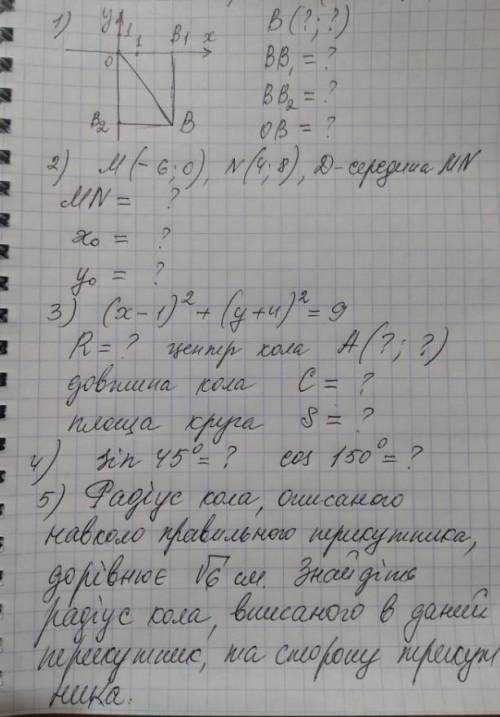 1) y 1 1 B₁ x B (?; ?)
0 BB₁ = ?
BB₂ = ?
B₂ B OB = ?
2) M(-6; 0), N(4; 8), D-середина MN
MN = ?
x₀ = ?
y₀ = ?
3) (x-1)² + (y+4)² = 9
R = ? центр кола A(?; ?)
довжина кола C = ?
площа круга S = ?
4) sin 45° = ? cos 150° = ?
5) Радіус кола, описаного
навколо правильного трикутника,
дорівнює √6 см. Знайдіть
радіус кола, вписаного в даний
трикутник, та сторону трикут
ника.